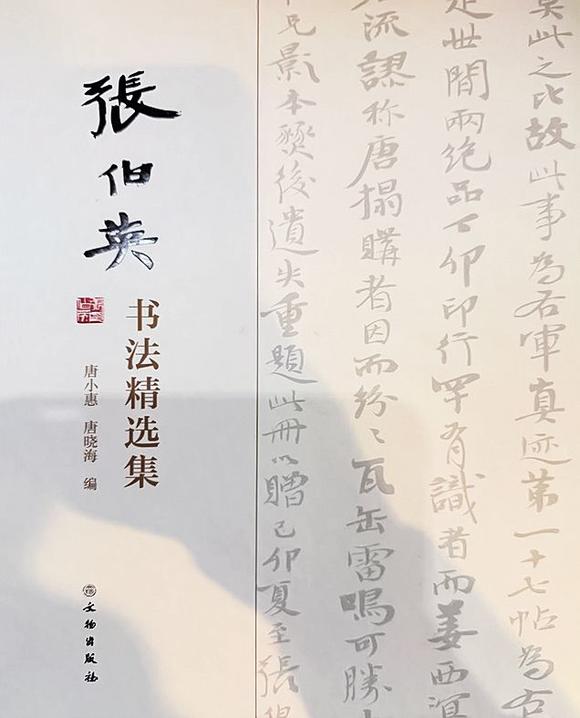 張伯英
书法精选集
唐小惠 唐晓海 编
文物出版社
此之比故此事為右軍真迹第一十七帖為右
是世間兩絶品丁卯印行罕有識者而姜西溟
流謬称唐搨購者因而纷〻瓦缶雷鳴可勝
兄影本燹後遺失重題此冊以贈己卯夏至張